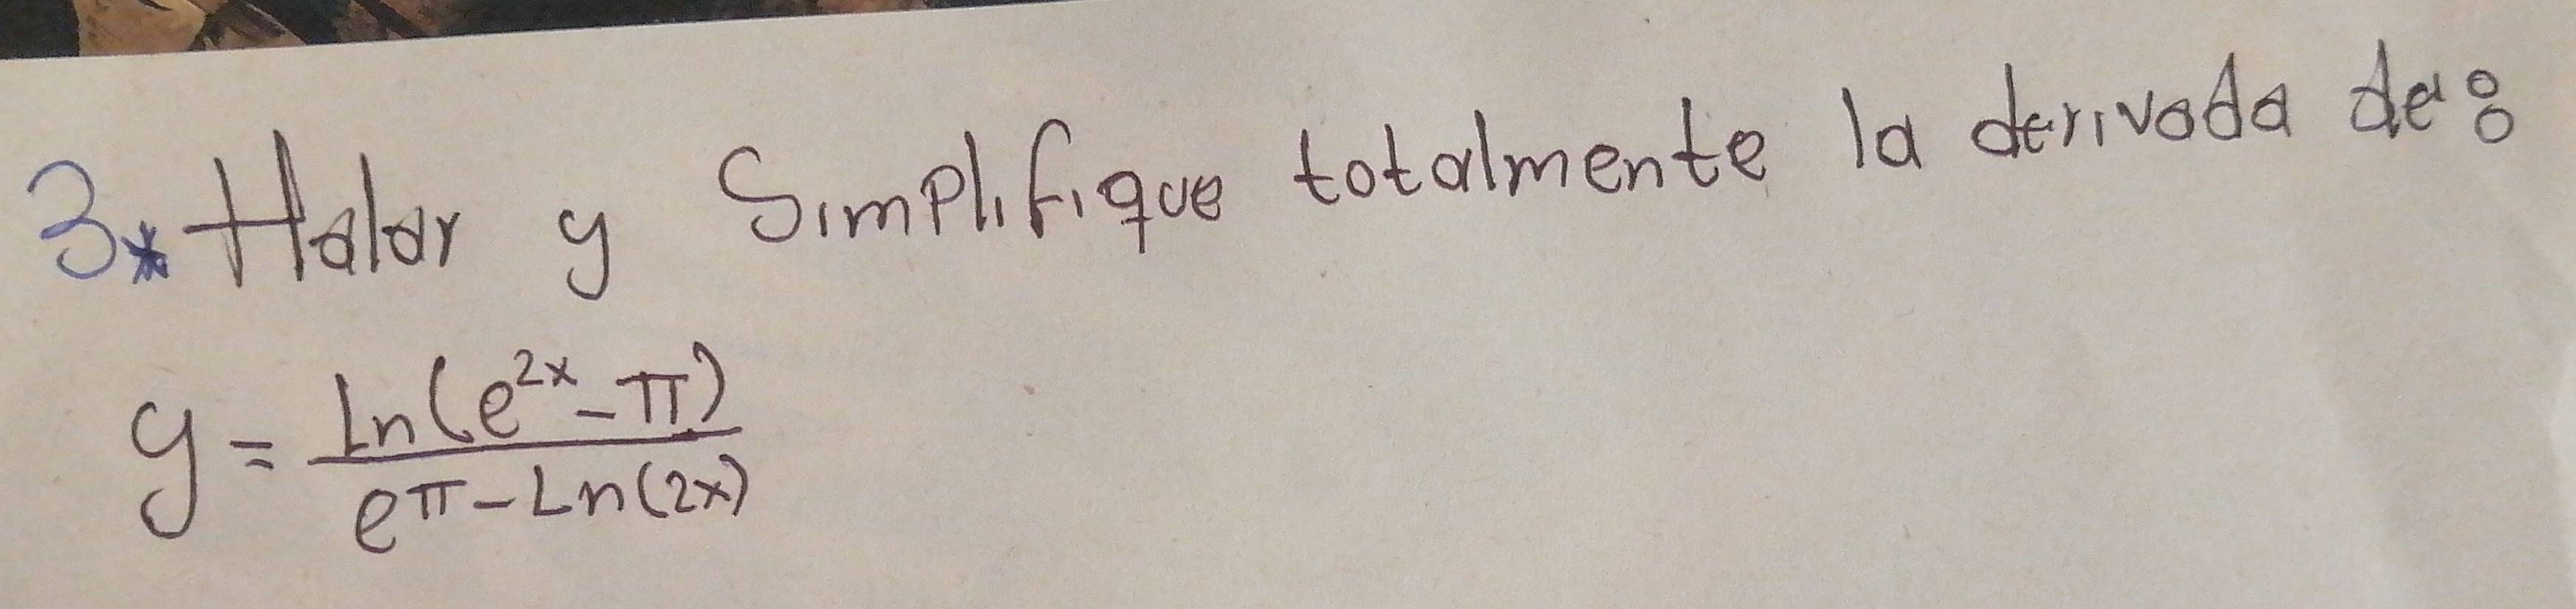 3* Halar y Simplifique totalmente la derivada de:
y = ln(e^2x - π) / eπ - Ln(2x)